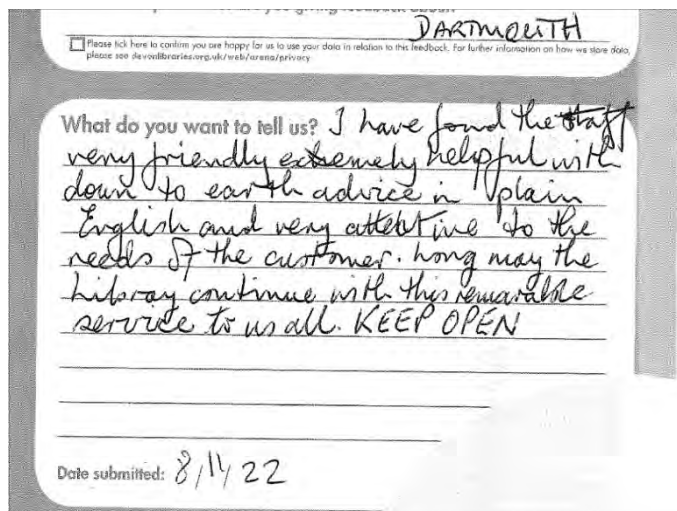 DARTMOUTH
Please tick here to confirm you are happy for us to use your data in relation to this feedback. For further information on how we store data,
please see devonlibraries.org.uk/web/arena/privacy
What do you want to tell us? I have found the staff
very friendly extremely helpful with
down to earth advice in plain
English and very attentive to the
needs of the customer. Long may the
Library continue with this remarable
service to us all. KEEP OPEN
Date submitted: 8/11/22